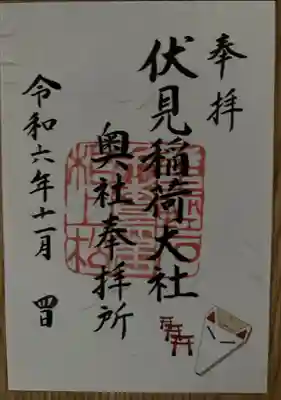 奉拝
伏見稲荷大社
奥社奉拝所
令和六年十一月四日